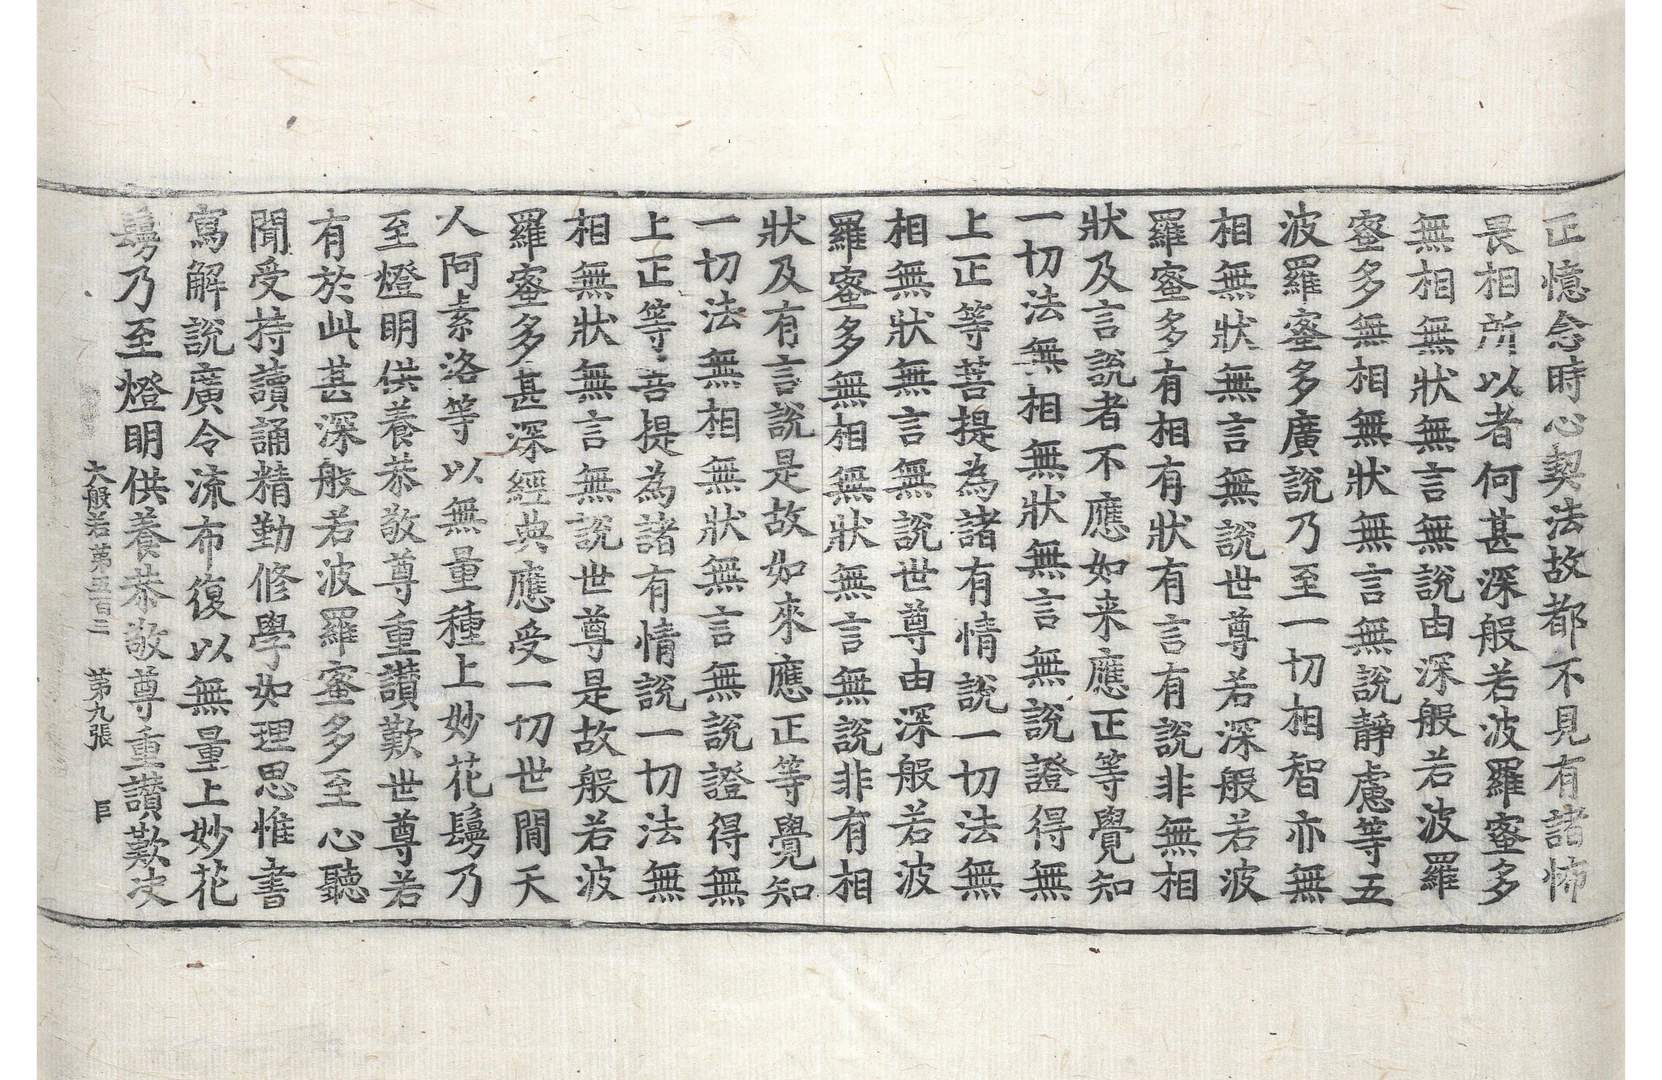 正憶念時心契法故都不見有諸怖
畏相所以者何甚深般若波羅蜜多
無相無狀無言無說由深般若波羅
蜜多無相無狀無言無說靜慮等五
波羅蜜多廣說乃至一切相智亦無
相無狀無言無說世尊若深般若波
羅蜜多有相有狀有言有說非無相
狀及言說者不應如来應正等覺知
一切法無相無狀無言無說證得無
上正等菩提為諸有情說一切法無
相無狀無言無說世尊由深般若波
羅蜜多無相無狀無言無說非有相
狀及有言說是故如來應正等覺知
一切法無相無狀無言無說證得無
上正等菩提為諸有情說一切法無
相無狀無言無說世尊是故般若波
羅蜜多甚深經典應受一切世間天
人阿素洛等以無量種上妙花鬘乃
至燈明供養恭敬尊重讚歎世尊若
有於此甚深般若波羅蜜多至心聽
聞受持讀誦精勤修學如理思惟書
寫解說廣令流布復以無量上妙花
鬘乃至燈明供養恭敬尊重讚歎決
大般若第五百二 第九張